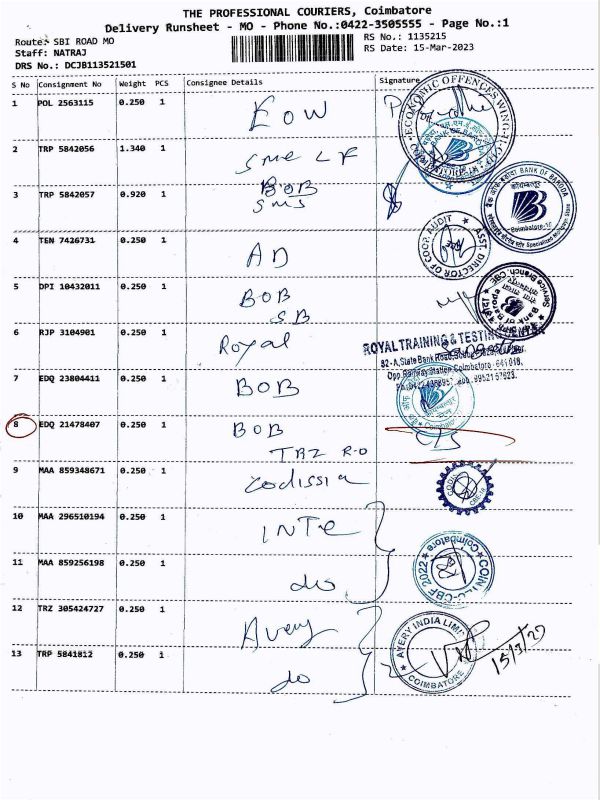 THE PROFESSIONAL COURIERS, Coimbatore
Delivery Runsheet - MO - Phone No.:0422-3505555 - Page No.:1
Route:- SBI ROAD MO
RS No.: 1135215
Staff: NATRAJ
RS Date: 15-Mar-2023
DRS No.: DCJB113521501
S No Consignment No Weight PCS Consignee Details Signature
1 POL 2563115 0.250 1 EOW
ECONOMIC OFFENCES WING-II
2 TRP 5842056 1.340 1 SME LF
BOB
BANK OF BARODA
3 TRP 5842057 0.920 1 SMS
BANK OF BARODA
Coimbatore
4 TEN 7426731 0.250 1 AD
ASST. DIRECTOR OF COOP. AUDIT
CBE
5 DPI 10432011 0.250 1 BOB
SB
Service Branch, CBE.
Bank of Baroda
6 RJP 3104901 0.250 1 Royal
ROYAL TRAINING & TESTING CENTRE
82-A, State Bank Road,
Opp. Railway Station, Coimbatore - 641 018.
7 EDQ 23804411 0.250 1 BOB
Coimbatore
8 EDQ 21478407 0.250 1 BOB
TRZ R-O
9 MAA 859348671 0.250 1 Codissia
10 MAA 296510194 0.250 1 INTC
11 MAA 859256198 0.250 1 do
Coimbatore
CBF 2022
12 TRZ 305424727 0.250 1 Avery
AVERY INDIA LIMITED
COIMBATORE
13 TRP 5841812 0.250 1 do